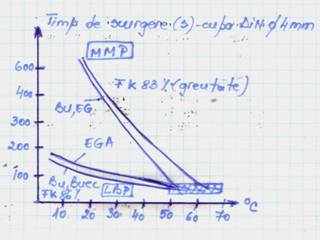 Timp de scurgere (s) - cupa DiN ∅4mm
MMP
600
FK 83% (greutate)
400
BU,EG
300
200
EGA
100
Bu,Buec
LBP
FK 86%
10 20 30 40 50 60 70 °C